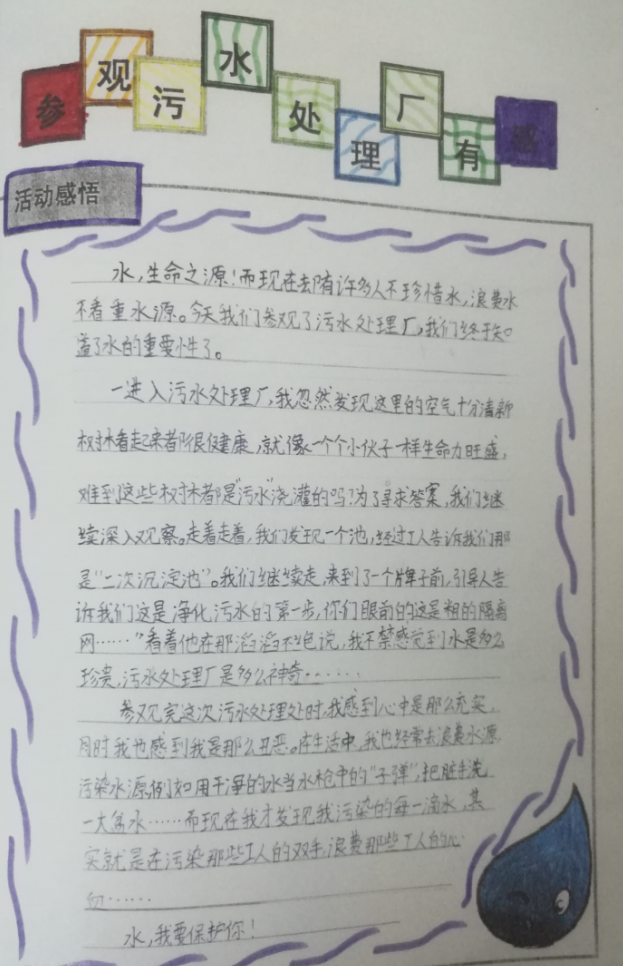 参观污水处理厂有感
活动感悟
水,生命之源!而现在却有许多人不珍惜水,浪费水
不看重水源。今天我们参观了污水处理厂,我们终于知
道了水的重要性了。
一进入污水处理厂,我忽然发现这里的空气十分清新
树林看起来都很健康,就像一个个小伙子一样生命力旺盛,
难到这些树林都是"污水"浇灌的吗?为了寻求答案,我们继
续深入观察。走着走着,我们发现一个池,经过工人告诉我们那
是"二次沉淀池"。我们继续走,来到了一个牌子前,引导人告
诉我们"这是净化污水的第一步,你们眼前的这是粗的隔离
网……"看着他在那滔滔不绝说,我不禁感觉到水是多么
珍贵,污水处理厂是多么神奇……
参观完这次污水处理处时,我感到心中是那么充实,
同时我也感到我是那么丑恶。在生活中,我也经常去浪费水源
污染水源,例如用干净的水当水枪中的"子弹",把脏手洗
一大盆水……而现在我才发现我污染的每一滴水,其
实就是在污染那些工人的双手,浪费那些工人的心
血……
水,我要保护你!